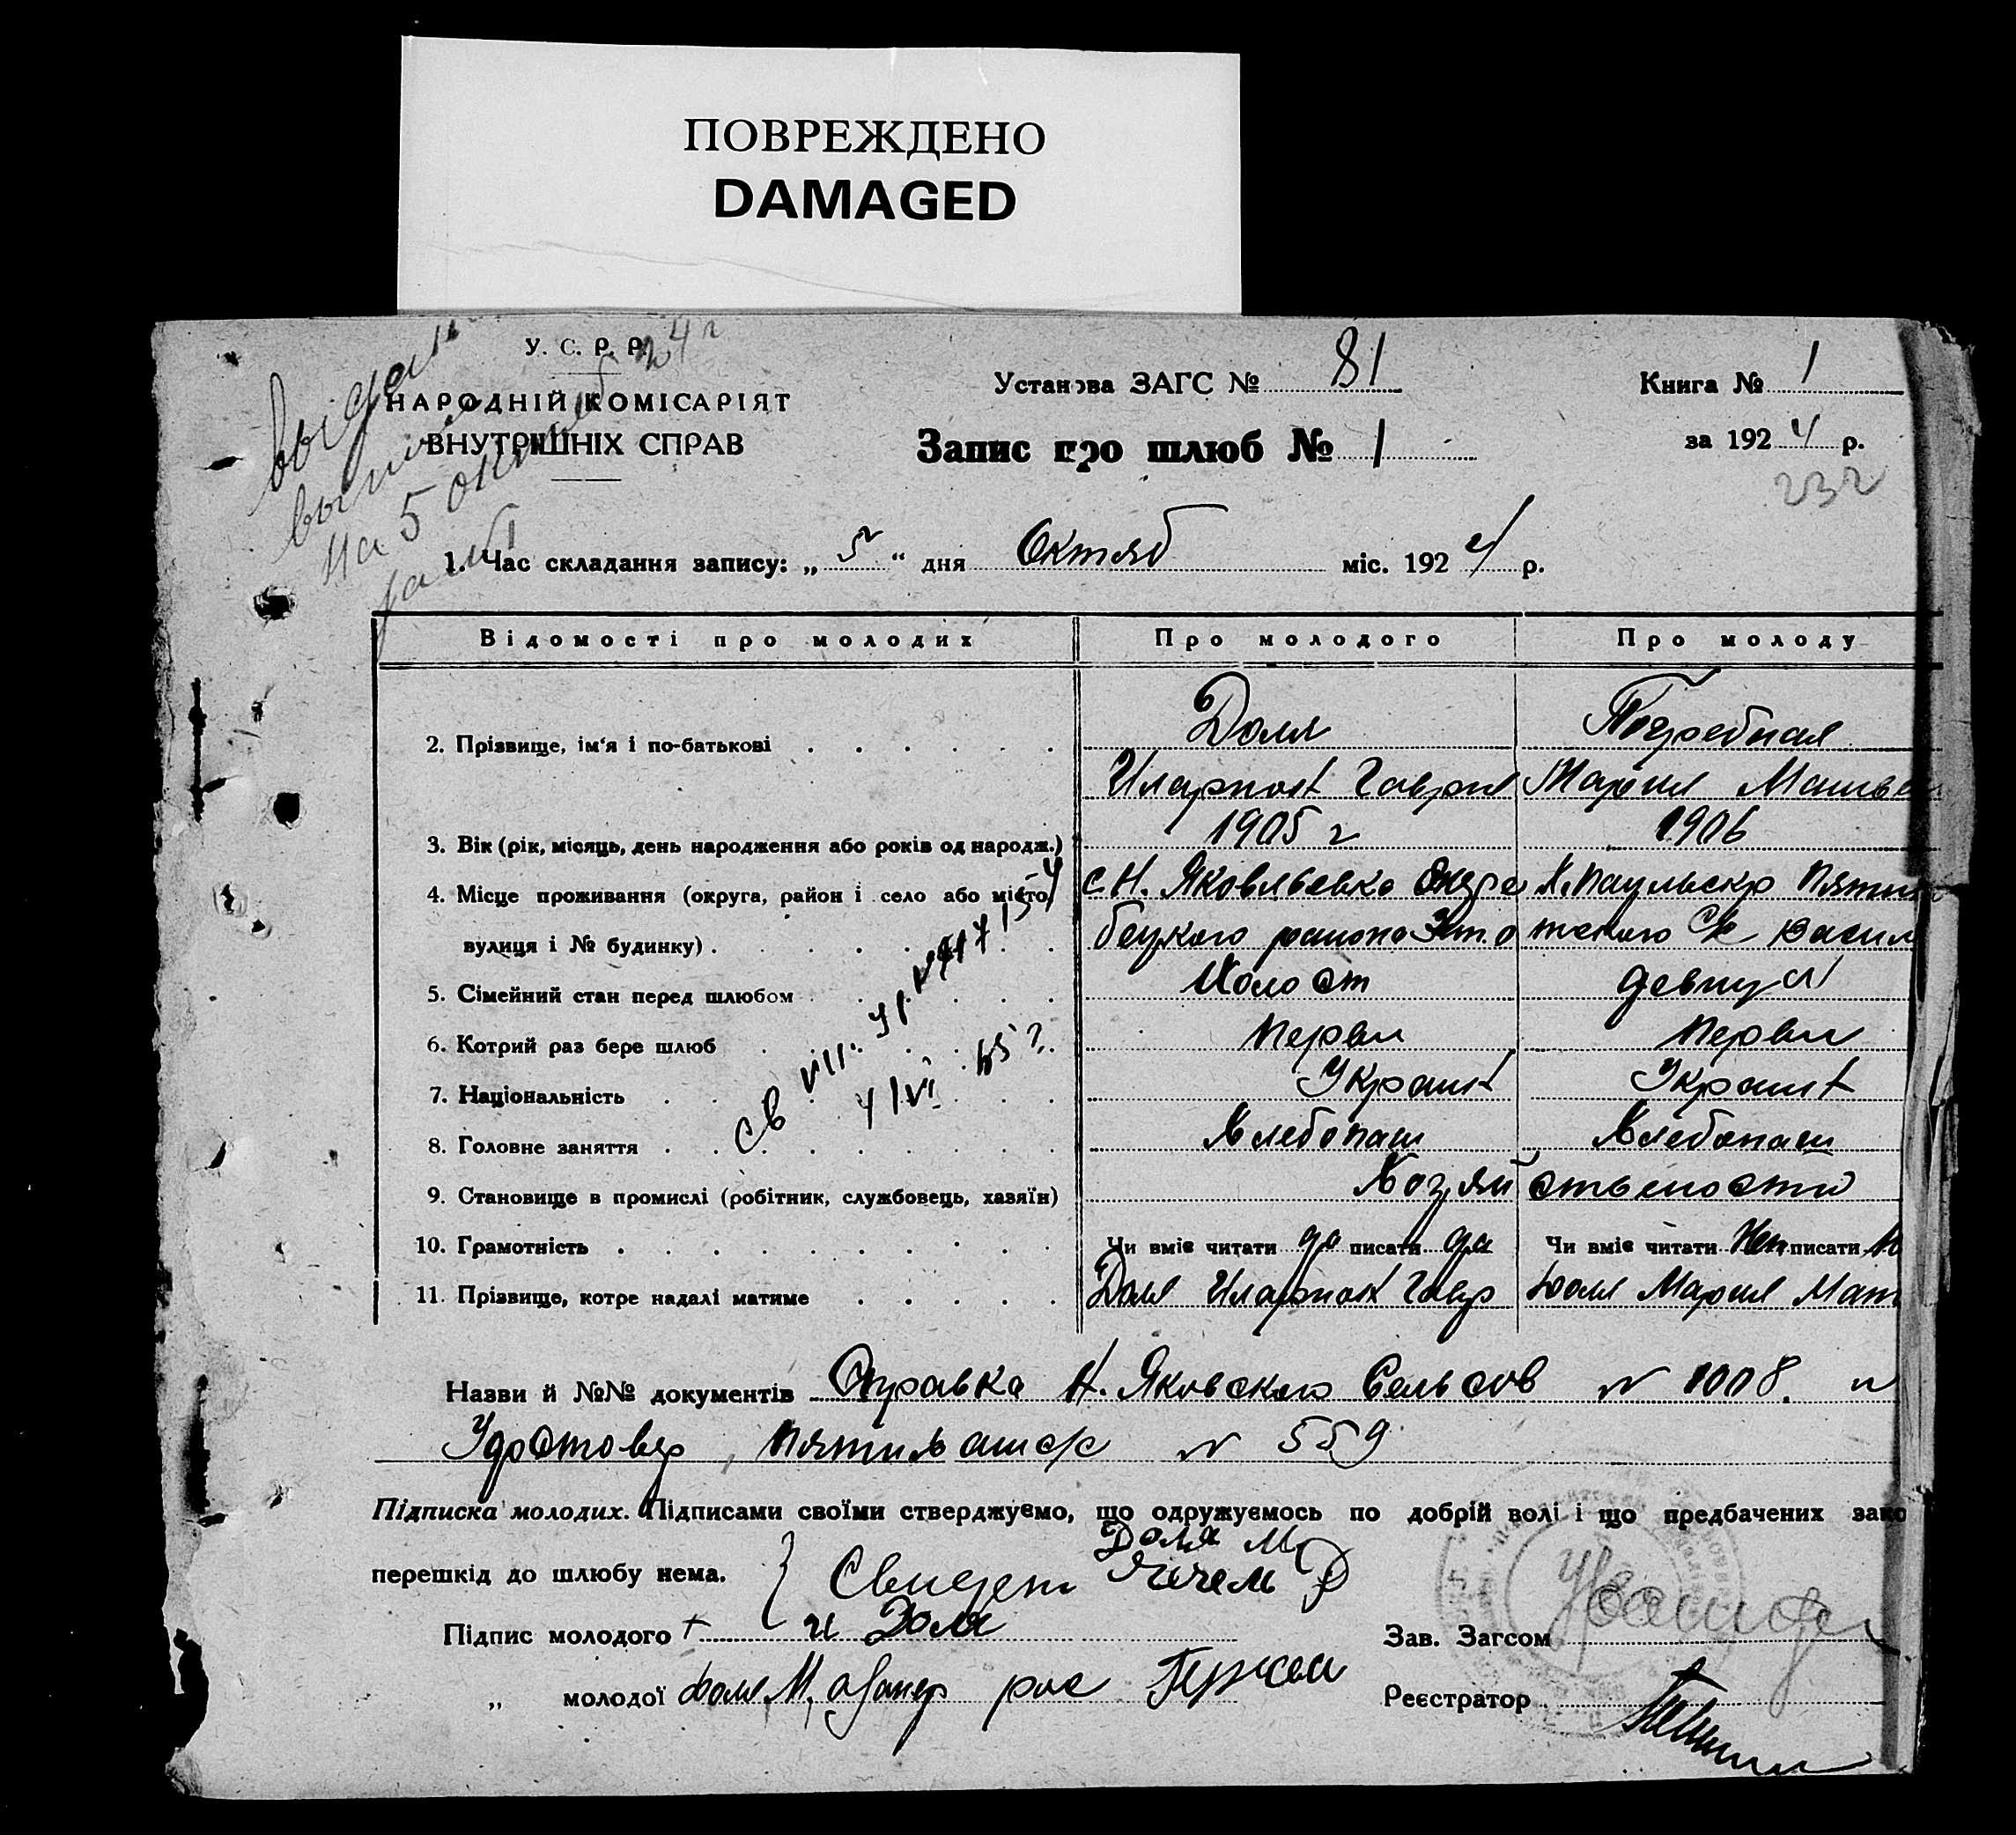 ПОВРЕЖДЕНО
DAMAGED
У. С. Р. Р.
НАРОДНІЙ КОМІСАРІЯТ
ВНУТРІШНІХ СПРАВ
на 5
24 г
Установа ЗАГС № 81
Книга № 1
Запис про шлюб № 1
за 1924 р.
232
1. Час складання запису: „5" дня Октяб міс. 1924 р.
Відомості про молодих Про молодого Про молоду
2. Прізвище, ім'я і по-батькові Доля Погребная
Иларион Гаврил Мария Матве
3. Вік (рік, місяць, день народження або років од народж.) 1905 г 1906
4. Місце проживання (округа, район і село або місто, с. Н. Яковлевка
вулиця і № будинку) бецкого района
5. Сімейний стан перед шлюбом Холост девица
6. Котрий раз бере шлюб Перви Перви
7. Національність Украин Украин
8. Головне заняття Хлебопаш Хлебопаш
9. Становище в промислі (робітник, службовець, хазяїн)
10. Грамотність Чи вміє читати да писати да Чи вміє читати Нет писати
11. Прізвище, котре надалі матиме Доля Иларион Гавр Доля Мария Мат
Назви й №№ документів Справка Н. Яковского Сельсов № 1008. и
Удостовер № 559
Підписка молодих. Підписами своїми стверджуємо, що одружуємось по добрій волі і що предбачених зако
Доля М
перешкід до шлюбу нема. Свидет
Підпис молодого и Доля Зав. Загсом
„ молодої Доля М. Реєстратор